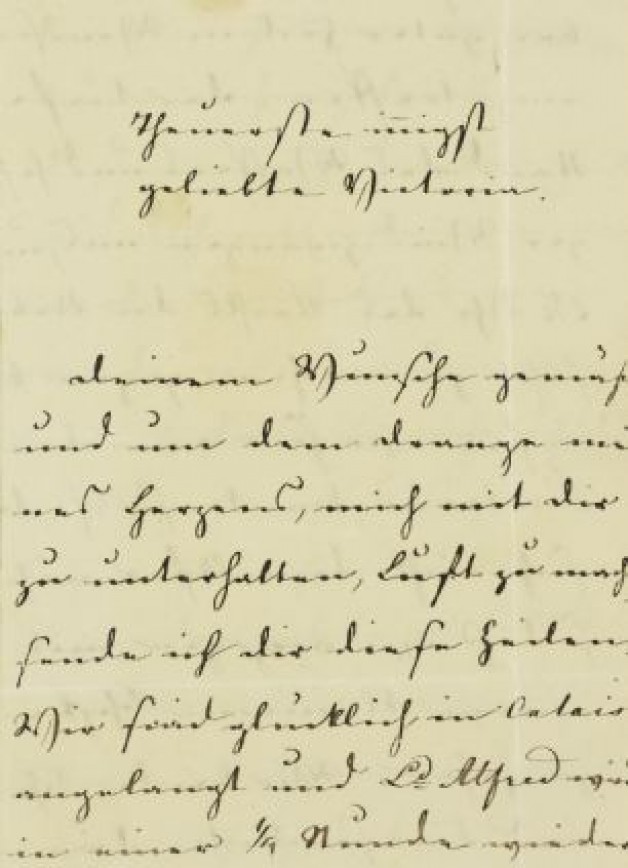 Theuerste innigst
geliebte Victoria.
deinem Wunsche gemäß
und um dem drange mei
nes Herzens, mich mit dir
zu unterhalten, Luft zu mach
sende ich dir diese Zeilen
Wir sind glücklich in Calais
angelangt und Ld Alfred wi
in einer 1/4 Stunde wieder